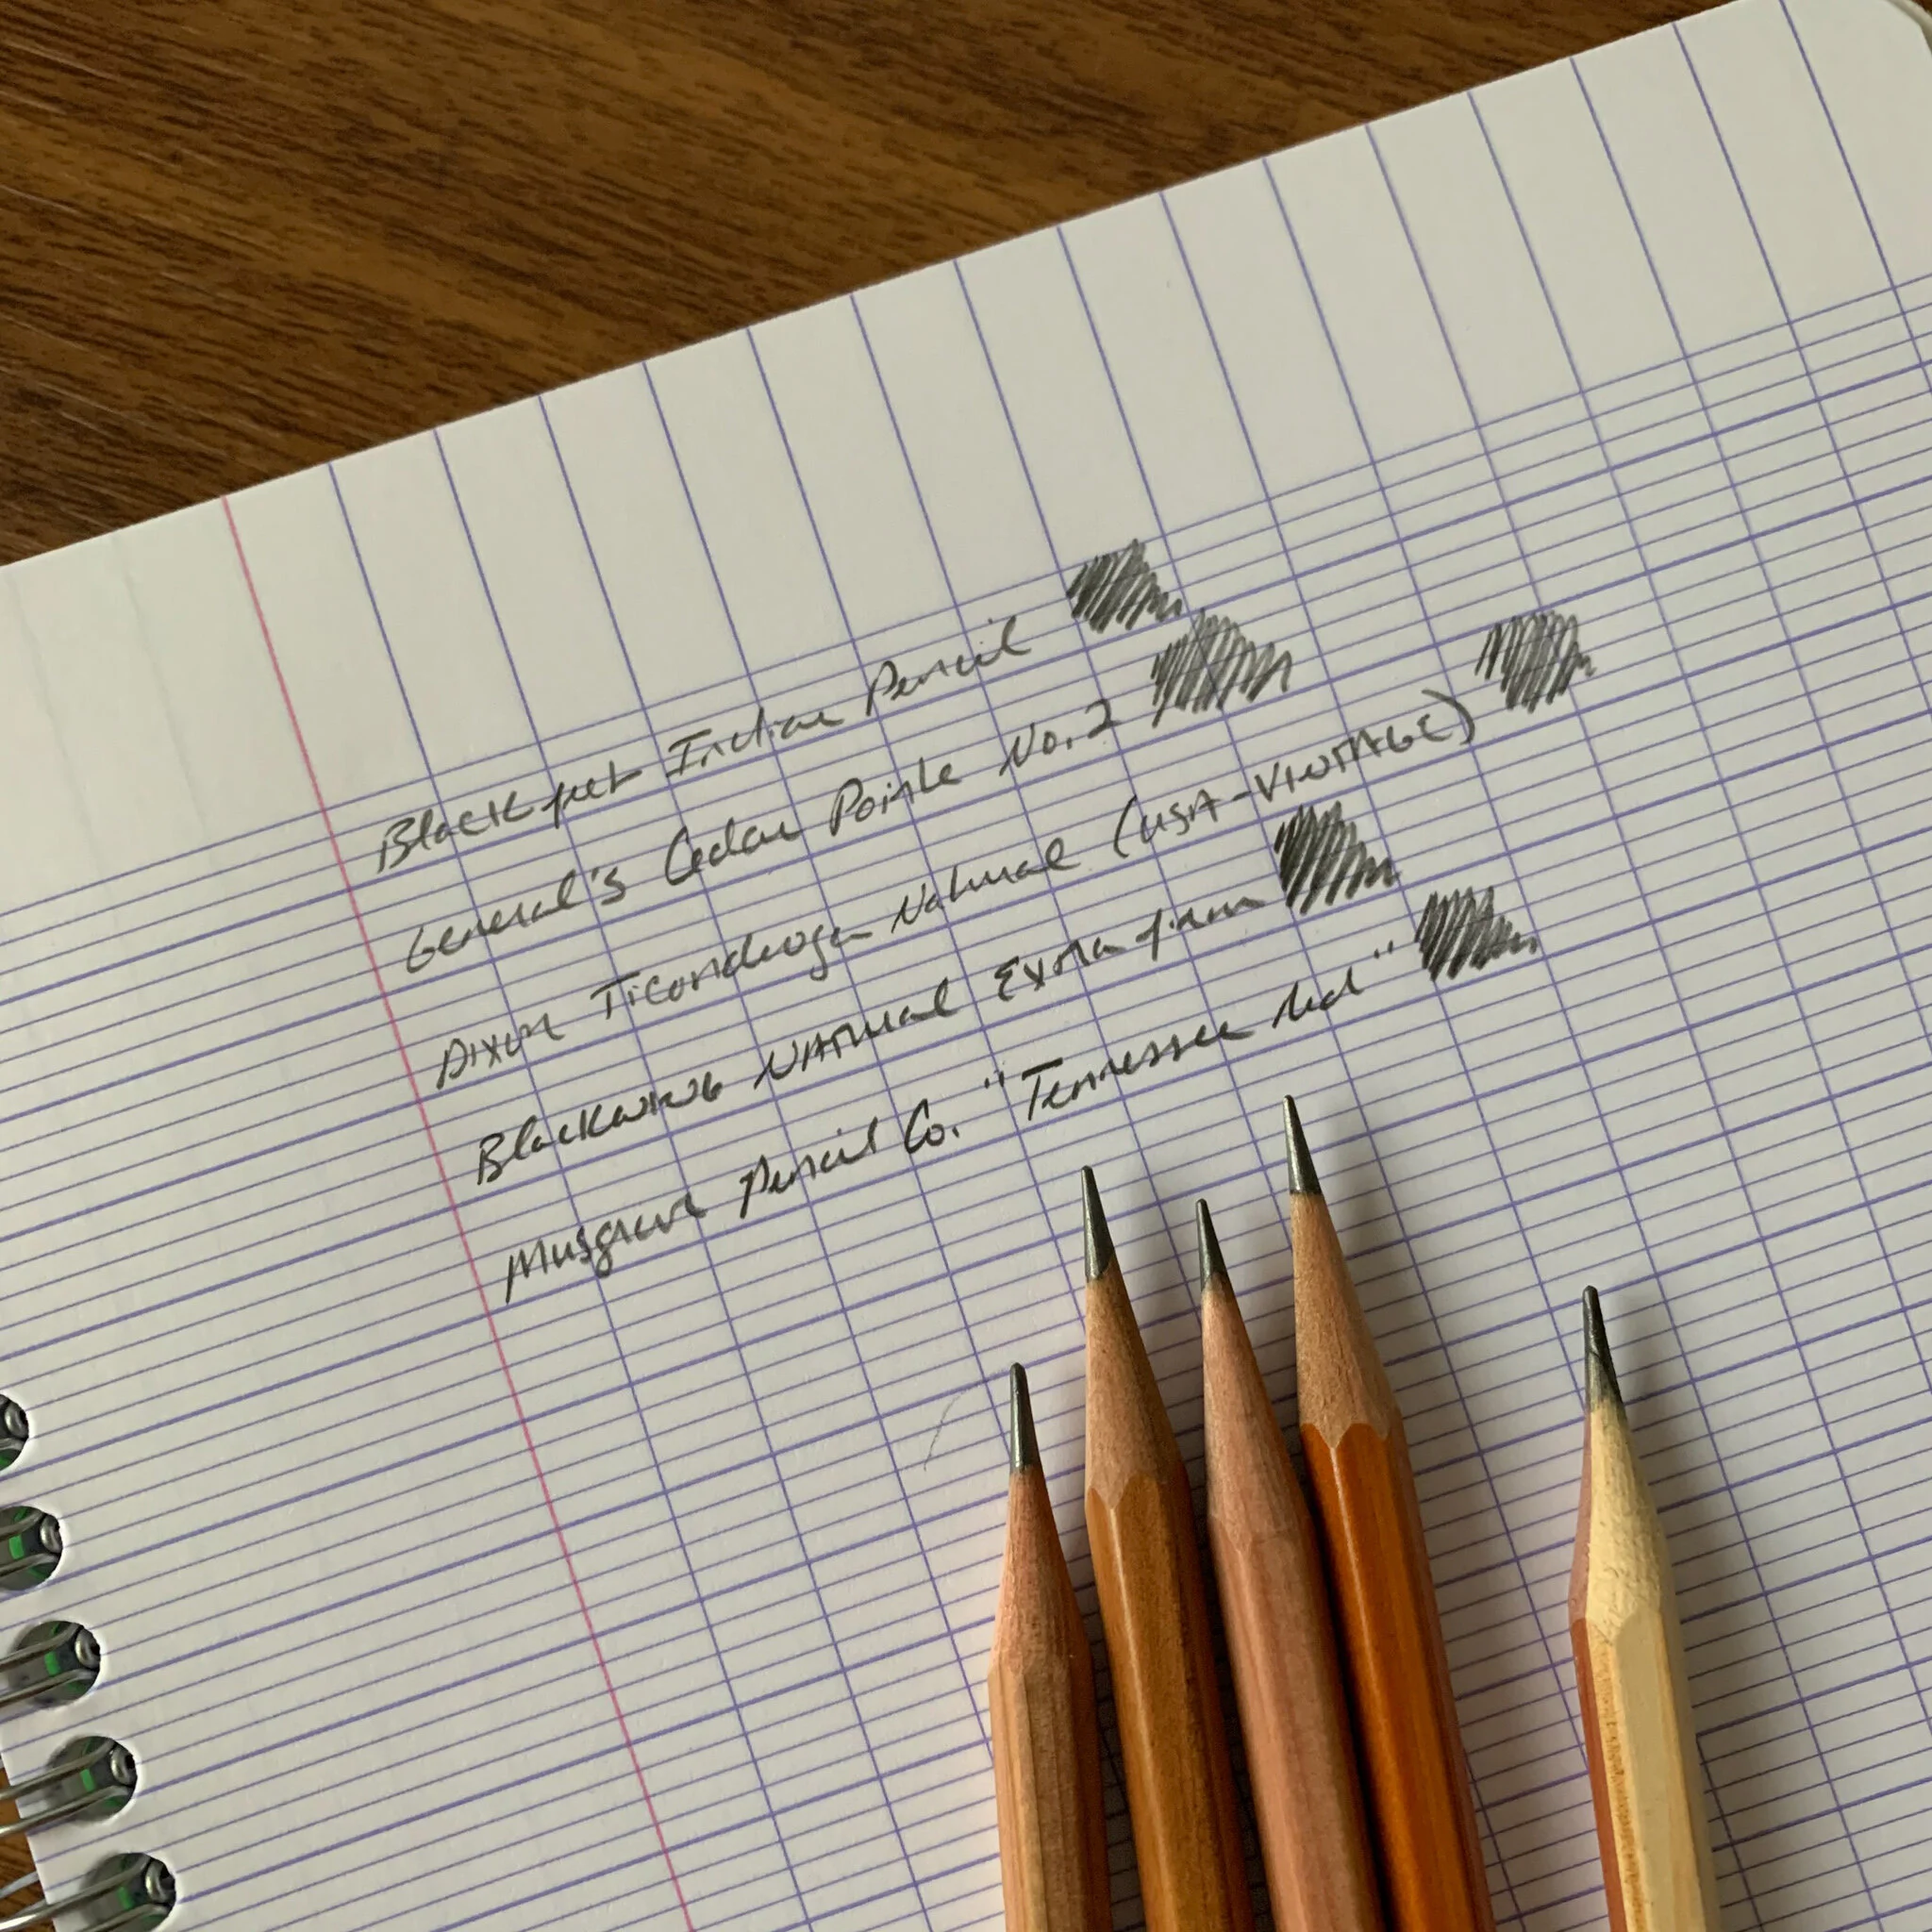 Blackfeet Indian Pencil
General's Cedar Pointe No. 2
Dixon Ticonderoga Natural (USA-VINTAGE)
Blackwing Natural Extra firm
Musgrave Pencil Co. "Tennessee Red"